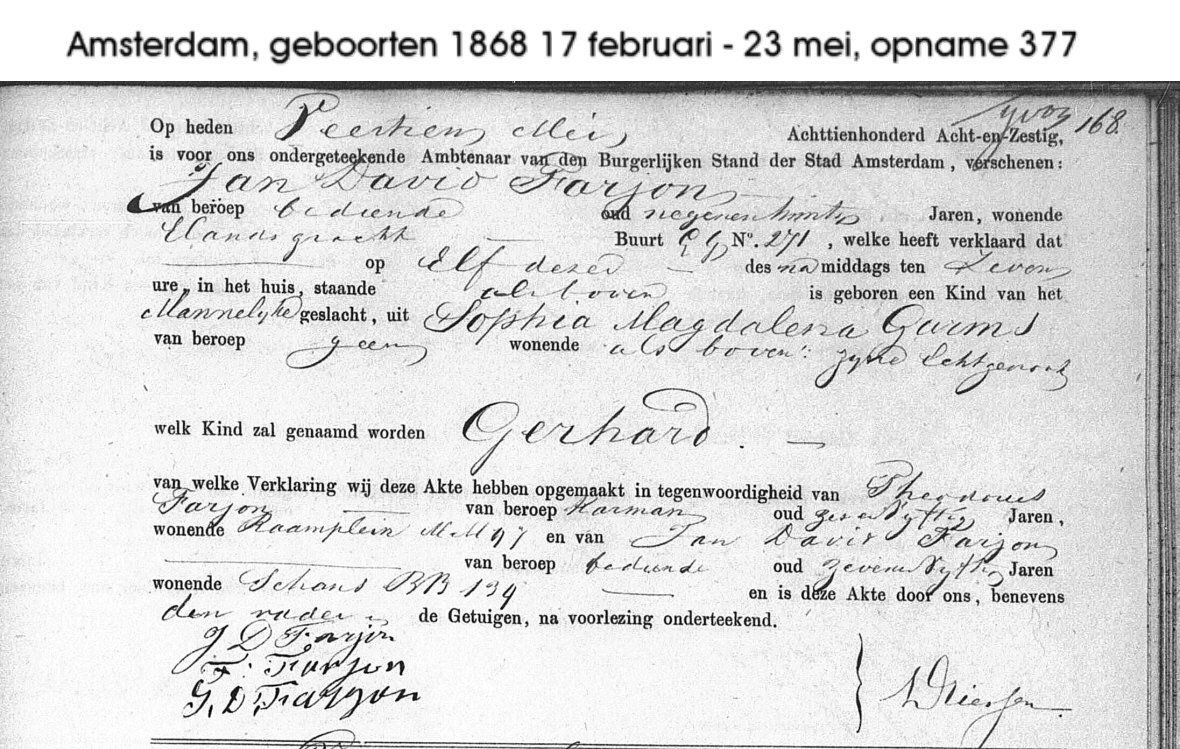 Amsterdam, geboorten 1868 17 februari - 23 mei, opname 377
168
Op heden Veertien Mei Achttienhonderd Acht-en-Zestig,
is voor ons ondergeteekende Ambtenaar van den Burgerlijken Stand der Stad Amsterdam, verschenen:
Jan David Farjon
van beroep bediende oud negenentwintig Jaren, wonende
Elandsgracht Buurt No. 271, welke heeft verklaard dat
op Elf dezer des namiddags ten Zeven
ure, in het huis, staande als boven is geboren een Kind van het
Mannelijke geslacht, uit Sophia Magdalena Garms
van beroep geen wonende als boven: zijne Echtgenoot
welk Kind zal genaamd worden Gerhard.
van welke Verklaring wij deze Akte hebben opgemaakt in tegenwoordigheid van Theodorus
Farjon van beroep Karman oud zevenvyftig Jaren,
wonende Raamplein MM 97 en van Jan David Farjon
van beroep bediende oud zevenenvyftig Jaren
wonende Schans BB 134 en is deze Akte door ons, benevens
den vader de Getuigen, na voorlezing onderteekend.
J D Farjon
T: Farjon
J. D. Farjon